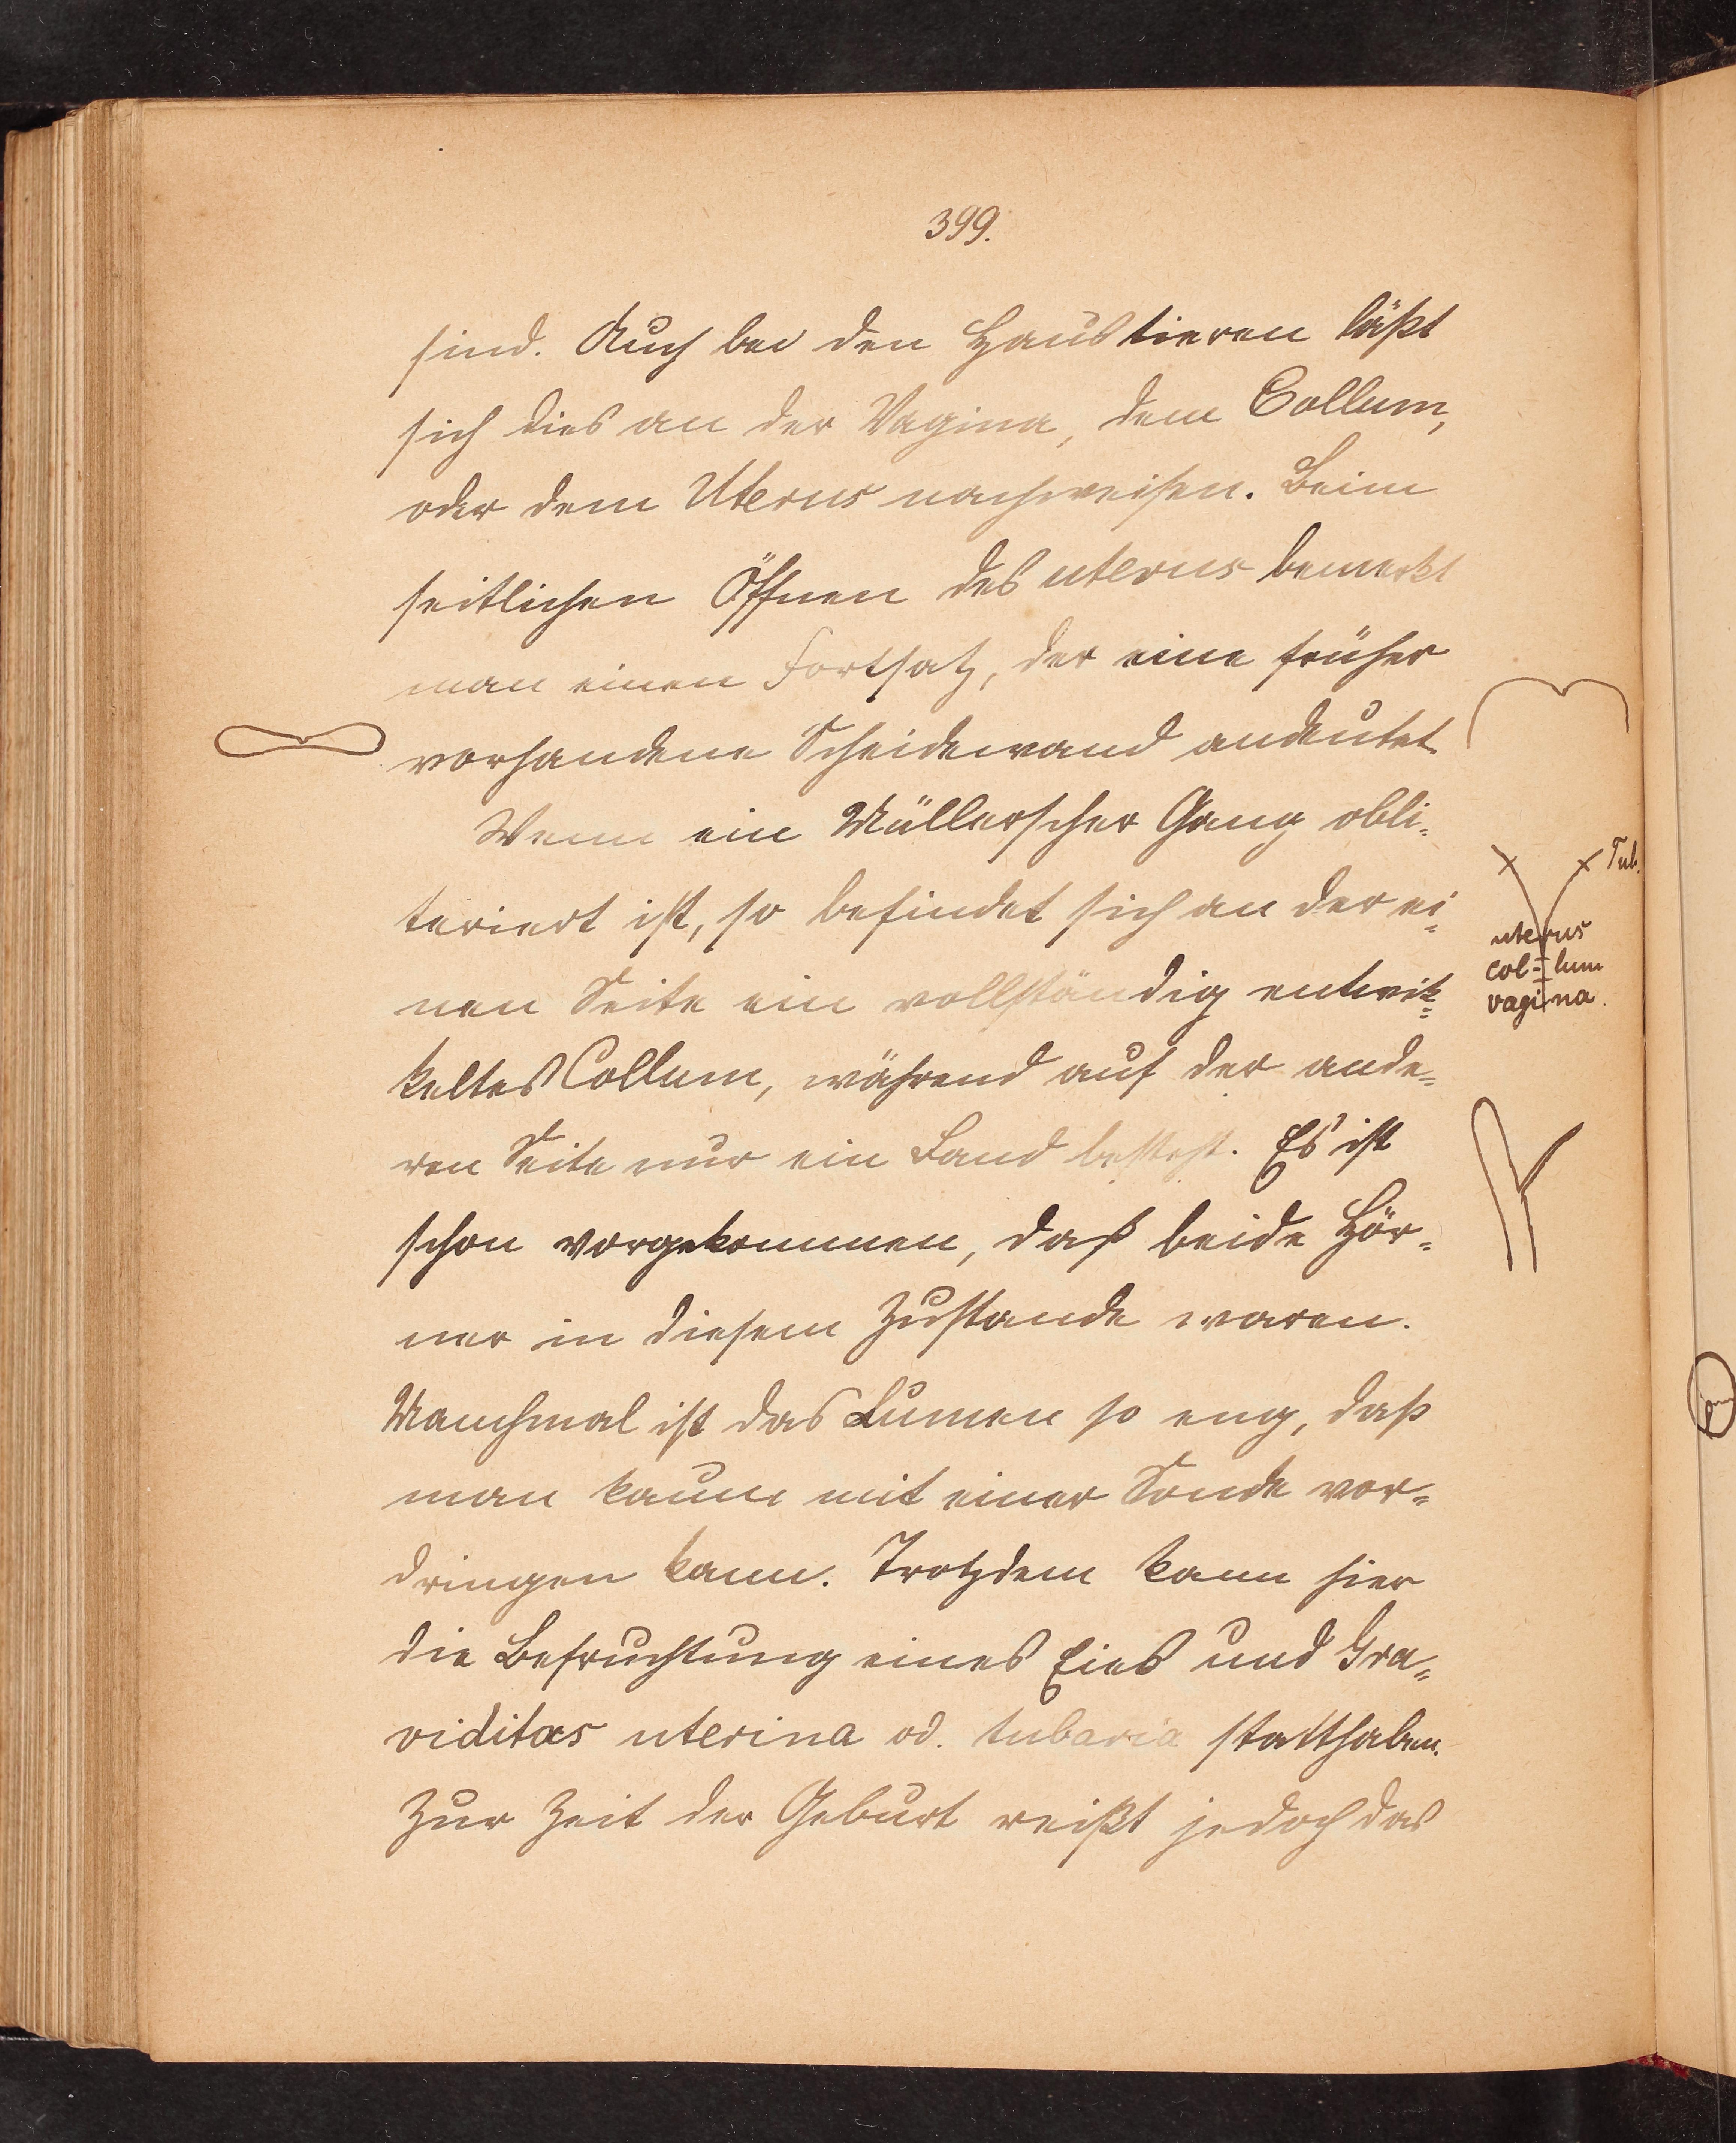 399.
sind. Auch bei den Haustieren läßt
sich dies an der Vagina, dem Collum,
oder dem Uterus nachweisen. Beim
seitlichen Öffnen des uterus bemerkt
man einen Fortsatz, der eine früher
vorhandene Scheidewand andeutet.
Wenn ein Müllerscher Gang obli-
teriert ist, so befindet sich an der ei-
nen Seite ein vollständig entwik-
keltes Collum, während auf der ande-
ren Seite nur ein Band besteht. Es ist
schon vorgekommen, daß beide Hör-
ner in diesem Zustande waren.
Manchmal ist das Lumen so eng, daß
man kaum mit einer Sonde vor-
dringen kann. Trotzdem kann hier
die Befruchtung eines Eies und Gra-
viditas uterina od. tubaria statthaben.
Zur Zeit der Geburt reißt jedoch das
Tub.
uterus
col-lum
vagina.